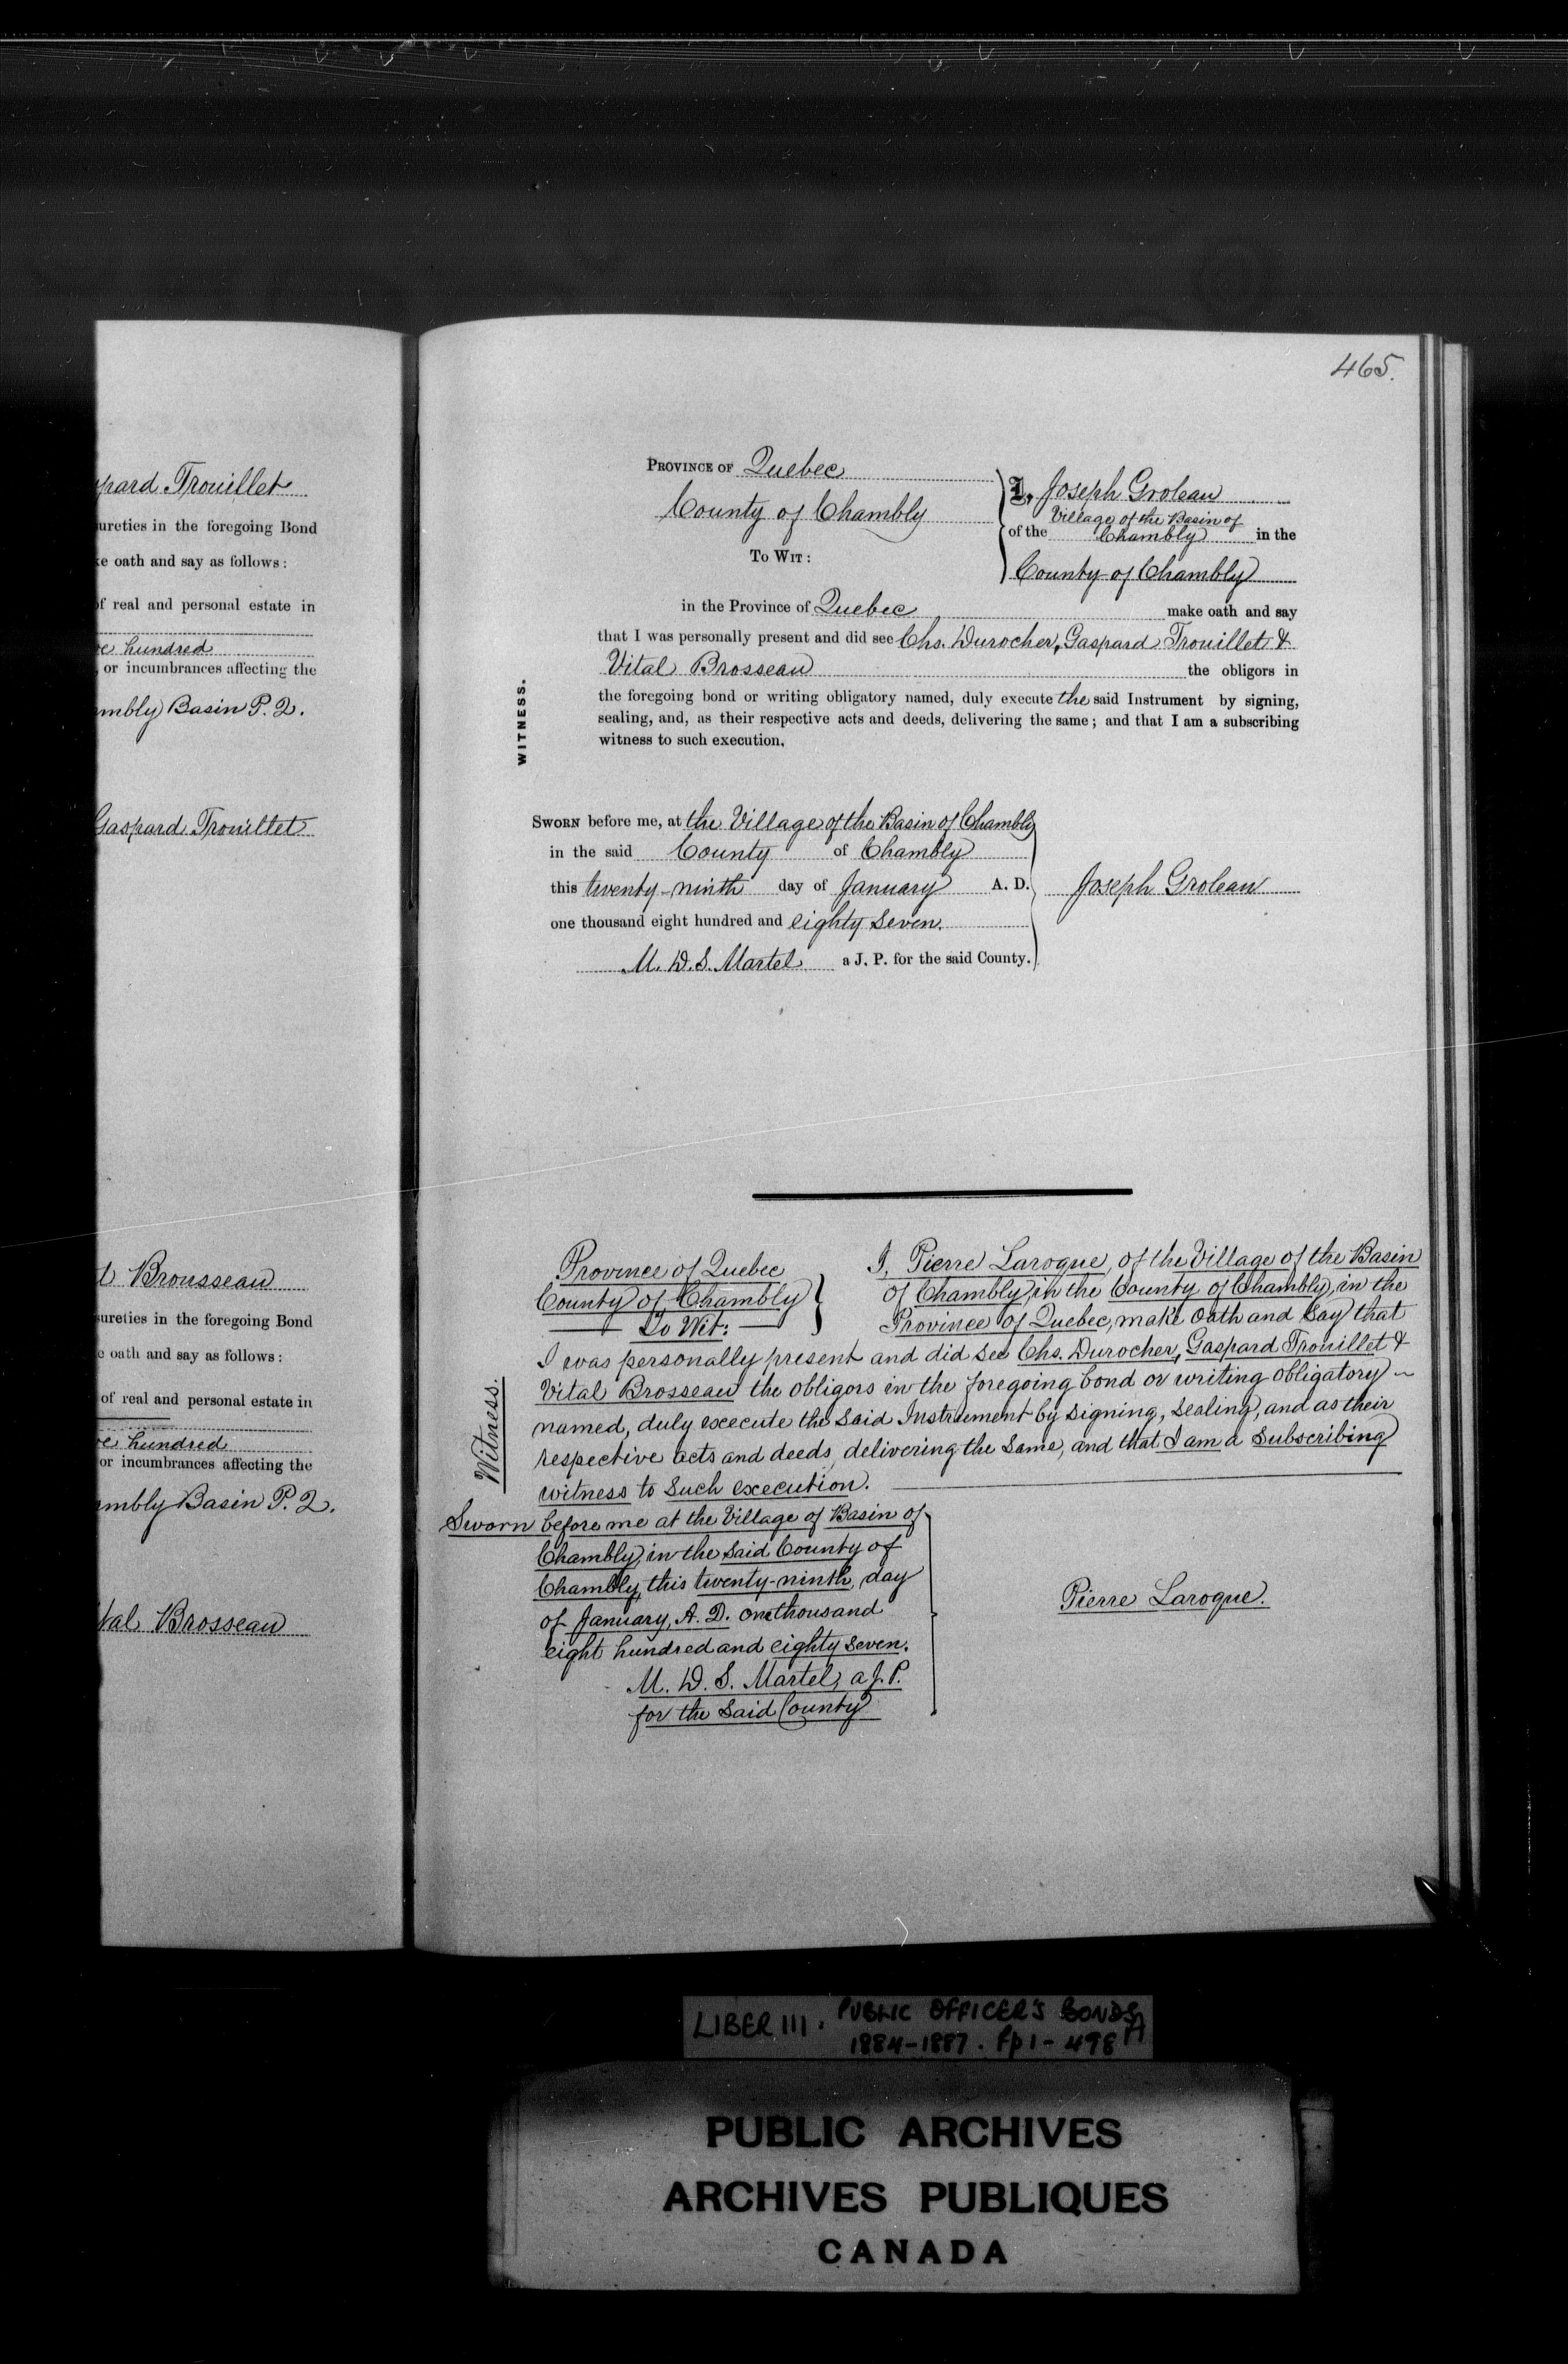 pard Trouillet
ureties in the foregoing Bond
e oath and say as follows:
f real and personal estate in
e hundred
, or incumbrances affecting the
mbly Basin P. Q.
Gaspard Trouillet
l Brousseau
sureties in the foregoing Bond
e oath and say as follows:
of real and personal estate in
e hundred
or incumbrances affecting the
mbly Basin P. Q.
tal Brosseau
465.
PROVINCE OF Quebec
County of Chambly
TO WIT:
I, Joseph Groleau
of the Village of the Basin of
Chambly in the
County of Chambly
in the Province of Quebec make oath and say
that I was personally present and did see Chs. Durocher, Gaspard Trouillet &
Vital Brosseau the obligors in
the foregoing bond or writing obligatory named, duly execute the said Instrument by signing,
sealing, and, as their respective acts and deeds, delivering the same; and that I am a subscribing
witness to such execution.
WITNESS.
SWORN before me, at the Village of the Basin of Chambly
in the said County of Chambly
this twenty-ninth day of January A. D.
one thousand eight hundred and eighty seven.
M. D. S. Martel a J. P. for the said County.
Joseph Groleau
Province of Quebec
County of Chambly
To Wit:
I, Pierre Laroque, of the Village of the Basin
of Chambly, in the County of Chambly, in the
Province of Quebec, make oath and say that
I was personally present and did see Chs. Durocher, Gaspard Trouillet &
Vital Brosseau the obligors in the foregoing bond or writing obligatory
named, duly excecute the said Instrument by signing, sealing, and as their
respective acts and deeds, delivering the same, and that I am a subscribing
witness to such excecution.
Witness.
Sworn before me at the Village of Basin of
Chambly, in the said County of
Chambly, this twenty-ninth, day
of January, A. D. one thousand
eight hundred and eighty seven.
M. D. S. Martel, a J. P.
for the said County
Pierre Laroque.
LIBER III. PUBLIC OFFICER'S BONDS
1884-1887. fp 1-498 A
PUBLIC ARCHIVES
ARCHIVES PUBLIQUES
CANADA